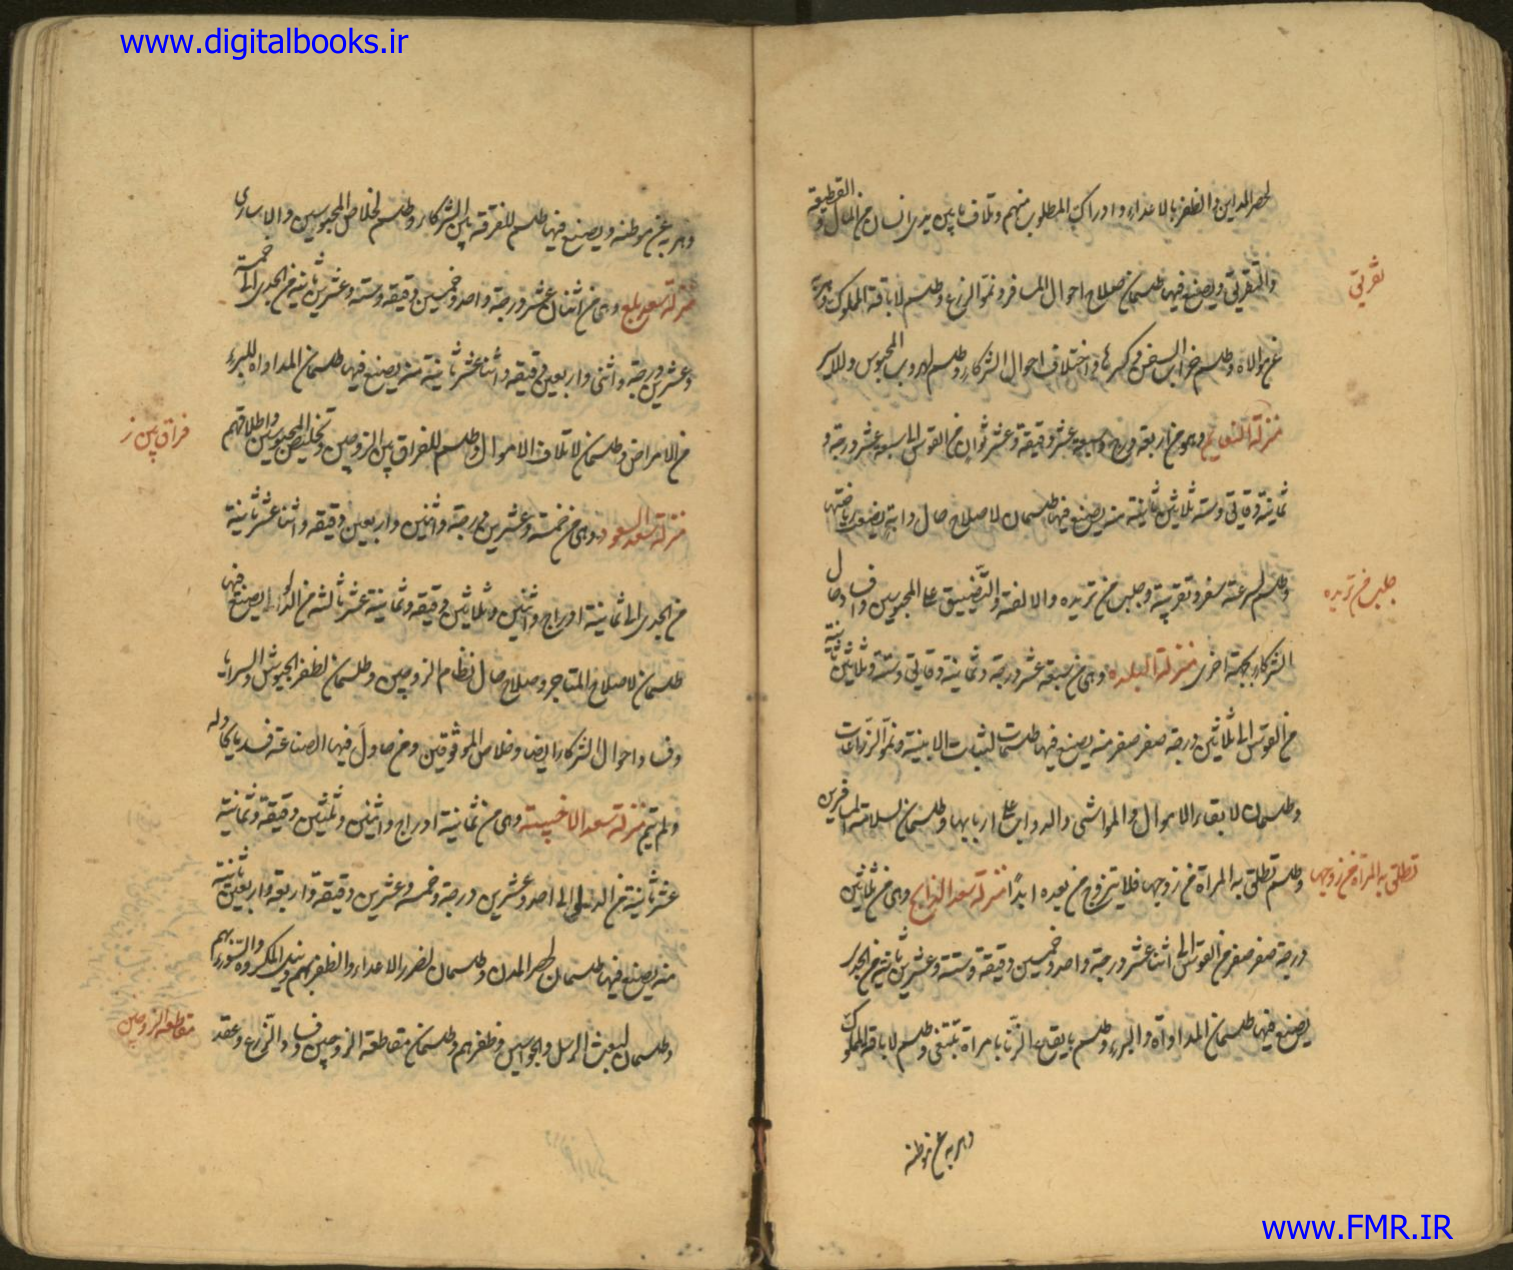 www.digitalbooks.ir
لحصر المداین والظفر بالاعداء وادراک المطلوب منهم وتلاف ما بین انسان من المال والقطیعة
والتفریق ویصنع فیها طلسمان صلاح احوال المسافر ونمو الزرع وطلسم لاباقة الملوک
تفریق
عن موالاه وطلسم خراب السفن وکسرها فی اختلاف احوال الشرکاء وطلسم لهروب المحبوس وللاسر
منزلة النعایم وهو من اربعة درج وسبعة عشر دقیقة وعشر ثوان من القوس الی سبعة عشر درجة و
ثمانیة دقایق وستة ثلاثین ثانیة منه یصنع فیها طلسمان لاصلاح حال دابة یصعب ریاضتها
وطلسم لسرعة سفر وتقریبه وجلب من تریده والالفة والتضییق علی المحبوسین وافساد حال
جلب من تریده
الشرکاء بجهة اخری منزلة البلدة وهی من سبعة عشر درجة وثمانیة دقایق وستة وثلاثین ثانیة
من القوس الی ثلاثین درجة صفر صفر منه یصنع فیها طلسمات لثبات الابنیة ونمو الزراعات
وطلسمان لابقاء الاموال والمواشی والدواب علی اربابها وطلسمان لسلامة المسافرین
وطلسم تطلق به المراة من زوجها فلا یتزوج من بعده ابدًا منزلة سعد الذابح وهی من ثلاثین
تطلق به المراة من زوجها
درجة صفر صفر من القوس الی اثنا عشر درجة واحد وخمسین دقیقة وستة وعشرین ثانیة من الجدی
یصنع فیها طلسمان المداواة والبرء وطلسم بایقاع الزنا بامراة تبتغی وطلسم لاباقة الملوک
وهربه عن موطنه
وهربه عن موطنه ویصنع فیها طلسم للتفرقة بین الشرکاء وطلسم لخلاص المحبوسین والاساری
منزلة سعد بلع وهی من اثنان عشر درجة واحد وخمسین دقیقة وستة وعشرین ثانیة من الجدی الی خمسة
وعشرین درجة واثنی واربعین دقیقة واثنا عشر ثانیة منه یصنع فیها طلسمان المداواه للبرء
من الامراض وطلسمان لاتلاف الاموال وطلسم للفراق بین الزوجین وتخلیص المحبوسین واطلاقهم
فراق بین ز
منزلة سعد السعود وهی من خمسة وعشرین درجة واثنین واربعین دقیقه واثنا عشر ثانیة
من الجدی الی ثمانیة ادراج واثنین وثلاثین دقیقه وثمانیة عشر ثالثه من الدلو یصنع فیها
طلسمان لاصلاح المتاجر وصلاح حال نظام الزوجین وطلسمان لظفر الجیوش والسرایا
وفساد احوال الشرکاء ایضا وخلاص الموثوقین ومن حاول فیها الصناعة فسد ما یحاوله
ولم یتم منزلة سعد الاخبیة وهی من ثمانیة ادراج واثنین وثلثین دقیقة وثمانیة
عشر ثانیة من الدلو الی احد وعشرین درجة وخمسه وعشرین دقیقة واربعة واربعین ثانیة
منه یصنع فیها طلسمان لحصر المدن وطلسمان لضرر الاعداء والظفر بهم
وطلسمان لبعث الرسل والجواسیس وظفرهم وطلسمان مقاطعة الزوجین وفساد الزرع وعقد
مقاطعة الزوجین
www.FMR.IR